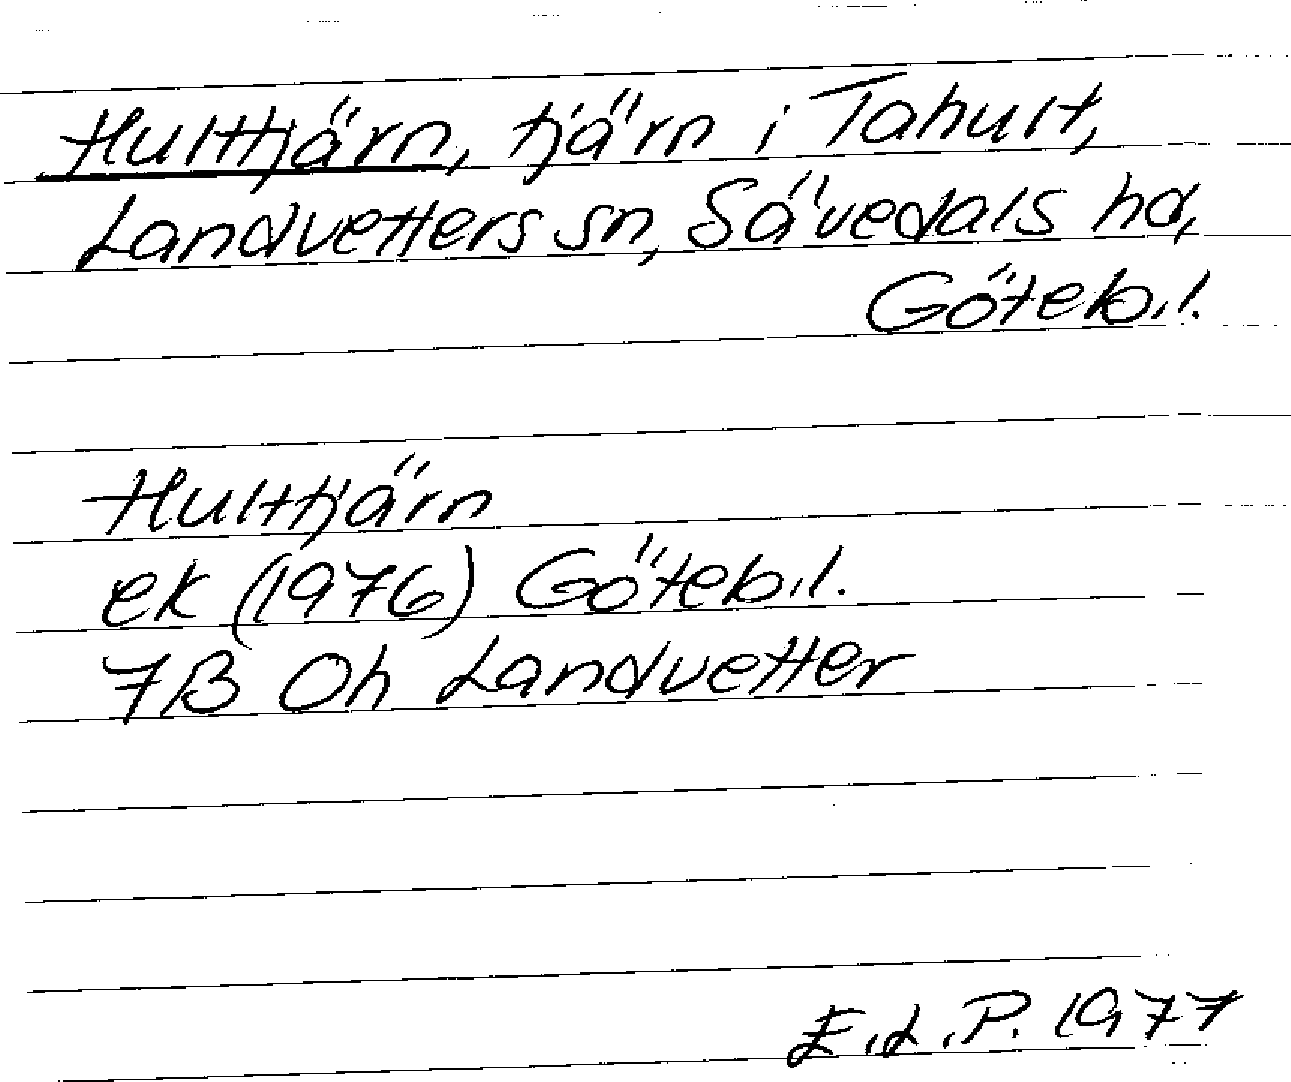 Hulttjärn, tjärn i Tahult,
Landvetters sn, Sävedals hd,
Göteb.l.
Hulttjärn
ek (1976) Göteb.l.
7B Oh Landvetter
E.L.P. 1977